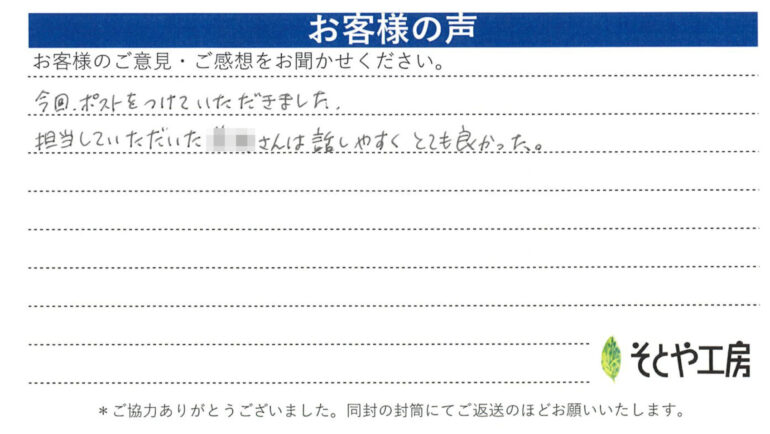 お客様の声
お客様のご意見・ご感想をお聞かせください。
今回、ポストをつけていただきました。
担当していただいた さんは話しやすくとても良かった。
そとや工房
＊ご協力ありがとうございました。同封の封筒にてご返送のほどお願いいたします。